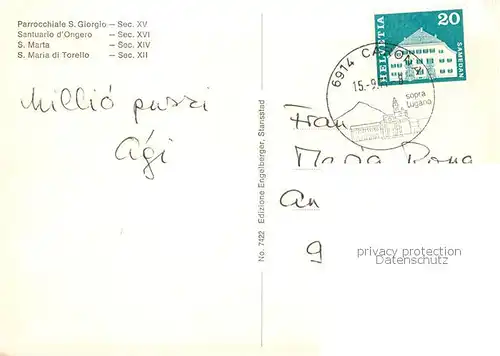 Parrocchiale S. Giorgio — Sec. XV
Santuario d'Ongero — Sec. XVI
S. Marta — Sec. XIV
S. Maria di Torello — Sec. XII
Millió puszi
Ági
No. 7422 Edizione Engelberger, Stansstad
HELVETIA
20
SAMEDAN
6914
15.-9.
sopra
Lugano
Frau
Maria
An
9
privacy protection
Datenschutz